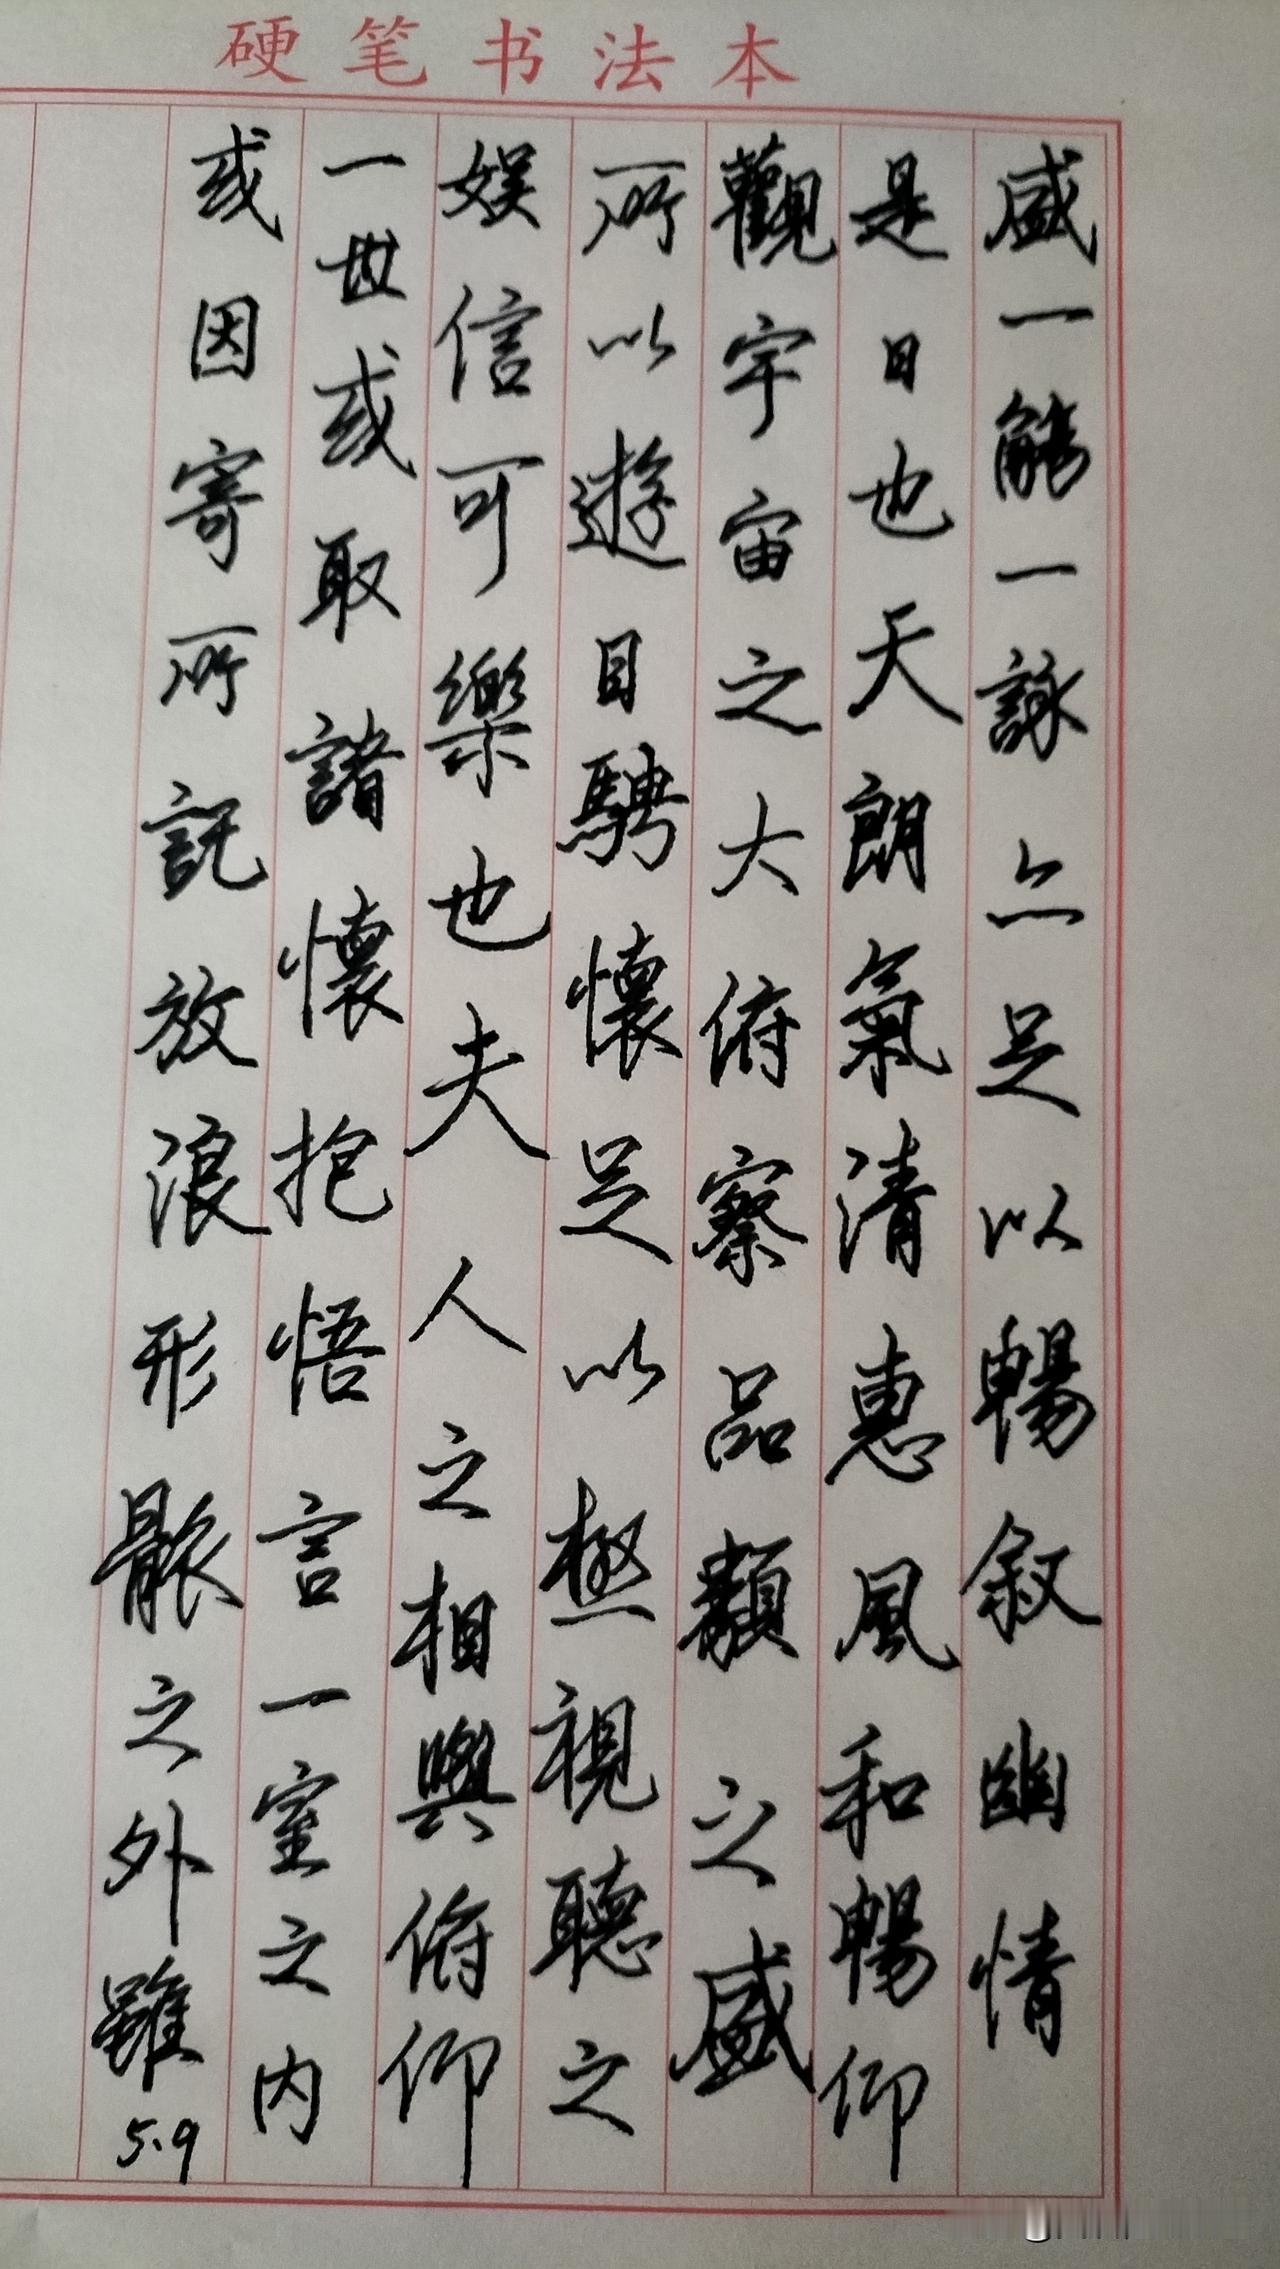 硬笔书法本
盛一觴一詠亦足以暢叙幽情
是日也天朗氣清惠風和暢仰
觀宇宙之大俯察品類之盛
所以遊目騁懷足以極視聽之
娱信可樂也夫人之相與俯仰
一世或取諸懷抱悟言一室之内
或因寄所託放浪形骸之外雖
5.9